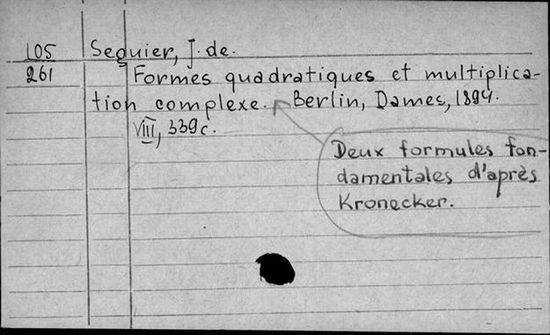 105 Seguier, J. de.
261 Formes quadratiques et multiplica-
tion complexe. Berlin, Dames, 1894.
VIII, 339c.
Deux formules fon-
damentales d'après
Kronecker.